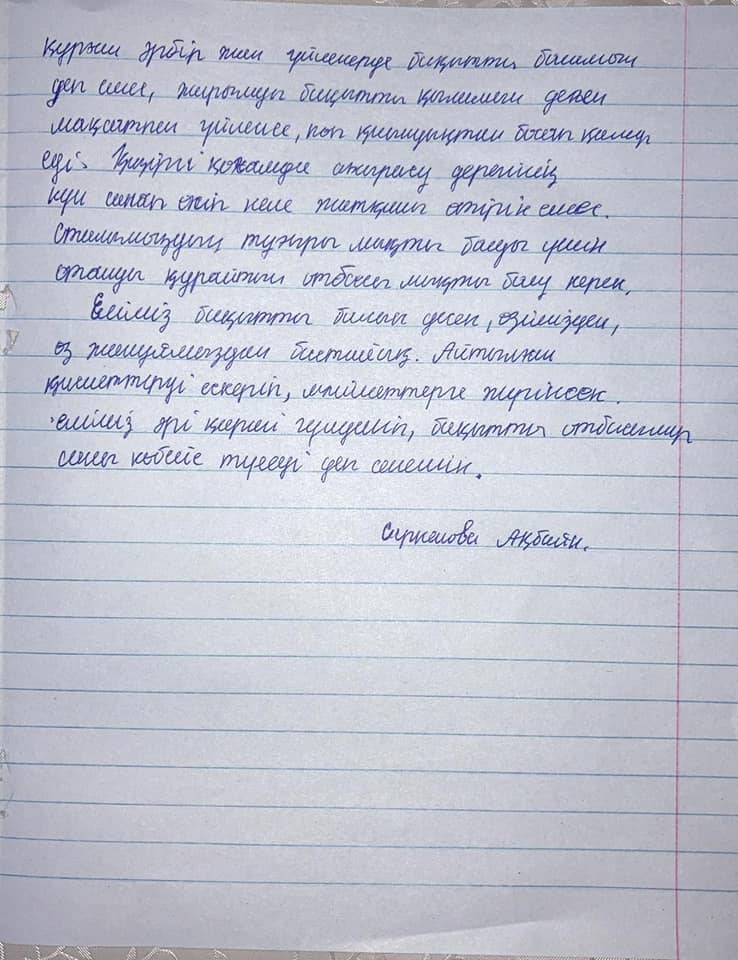 құрған әрбір жан үйленерде бақытты боламын
деп емес, жарымды бақытты қыламын деген
мақсатпен үйленсе, көп қиындықтан босап қалар
еді. Қазіргі қоғамда ажырасу дерегінің
күн санап өсіп келе жатқаны өтірік емес.
Отанымыздың тұғыры мықты болуы үшін
отанды құрайтын отбасы мықты болу керек.
Еліміз бақытты болсын десек, өзімізден,
өз жанұямыздан бастайық. Айтылған
қасиеттерді ескеріп, мәйіметтерге жүгінсек.
еліміз әрі қарай гүлденіп, бақытты отбасылар
саны көбейе түседі деп сенемін.
Ақбаян.